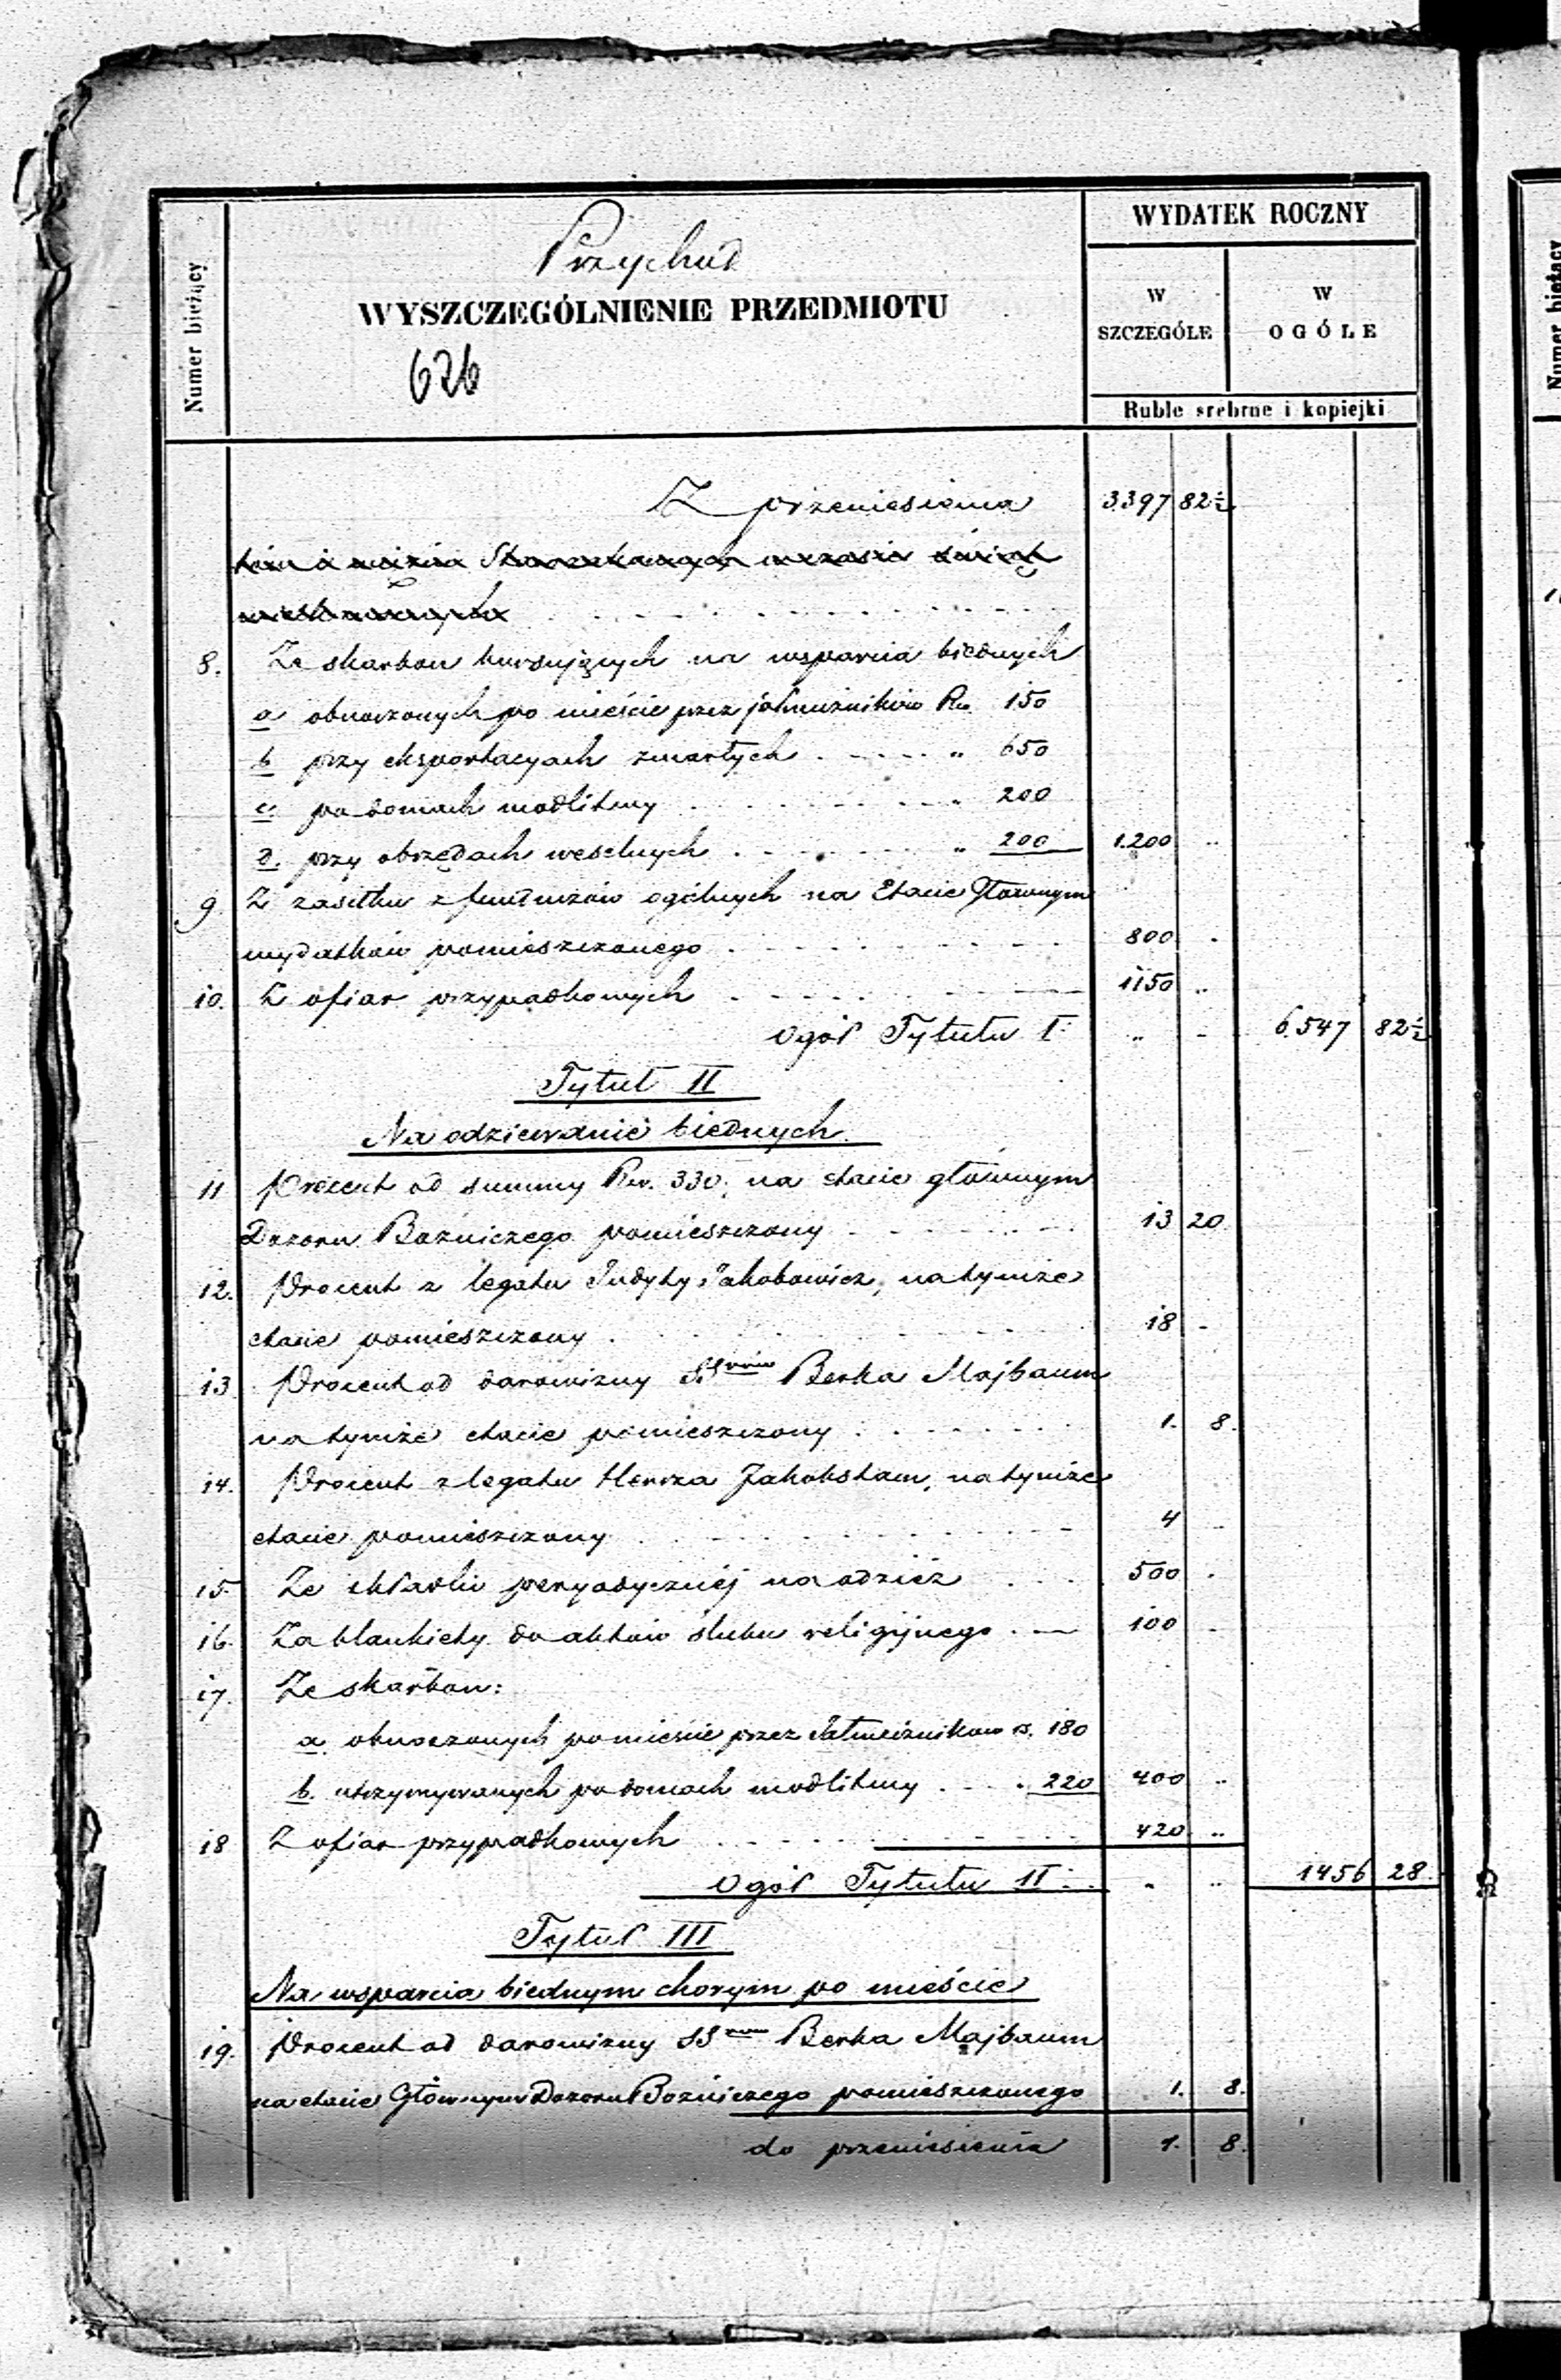 Numer bieżący
Przychód
WYSZCZEGÓLNIENIE PRZEDMIOTU
626
WYDATEK ROCZNY
W SZCZEGÓLE
W OGÓLE
Ruble srebrne i kopiejki
Z przeniesienia 3397 82½
8. Ze skarbon kursujących na wsparcia biednych
a obnoszonych po mieście przez jałmużników Rs. 150
b przy eksportacyach zmarłych . . . . . „ 650
c. po domach modlitwy . . . . . „ 200
d. przy obrzędach weselnych . . . . . „ 200 1.200 „
9 Z zasiłku z funduszów ogólnych na Etacie Głównym
wydatków pomieszczonego . . . . . 800 „
10. Z ofiar przypadkowych . . . . . 1150 „
Ogół Tytułu I „ „ 6.547 82½
Tytuł II
Na odziewanie biednych
11 Procent od summy Rs. 330, na etacie głównym
Dozoru Bożniczego pomieszczony . . . . . 13 20
12. Procent z legatu Judyty Jakobowicz, na tymże
etacie pomieszczony . . . . . 18 -
13 Procent od darowizny SSrów Berka Majbaum
na tymże etacie pomieszczony . . . . . 1. 8.
14. Procent z legatu Hersza Jakobstam, na tymże
etacie pomieszczony . . . . . 4 „
15. Ze składki peryodycznéj na odzież . . . 500 „
16. Za blankiety do aktów ślubu religijnego . — 100 „
17. Ze skarbon:
a obnoszonych po mieście przez Jałmużników rs. 180
b. utrzymywanych po domach modlitwy . . . . 220 400 „
18 Z ofiar przypadkowych . . . . . 420 „
Ogół Tytułu II . . „ „ 1456 28
Tytuł III
Na wsparcia biednym chorym po mieście
19. Procent od darowizny SSrów Berka Majbaum
na etacie Głównym Dozoru Bożniczego pomieszczonego 1. 8.
do przeniesienia 1. 8.